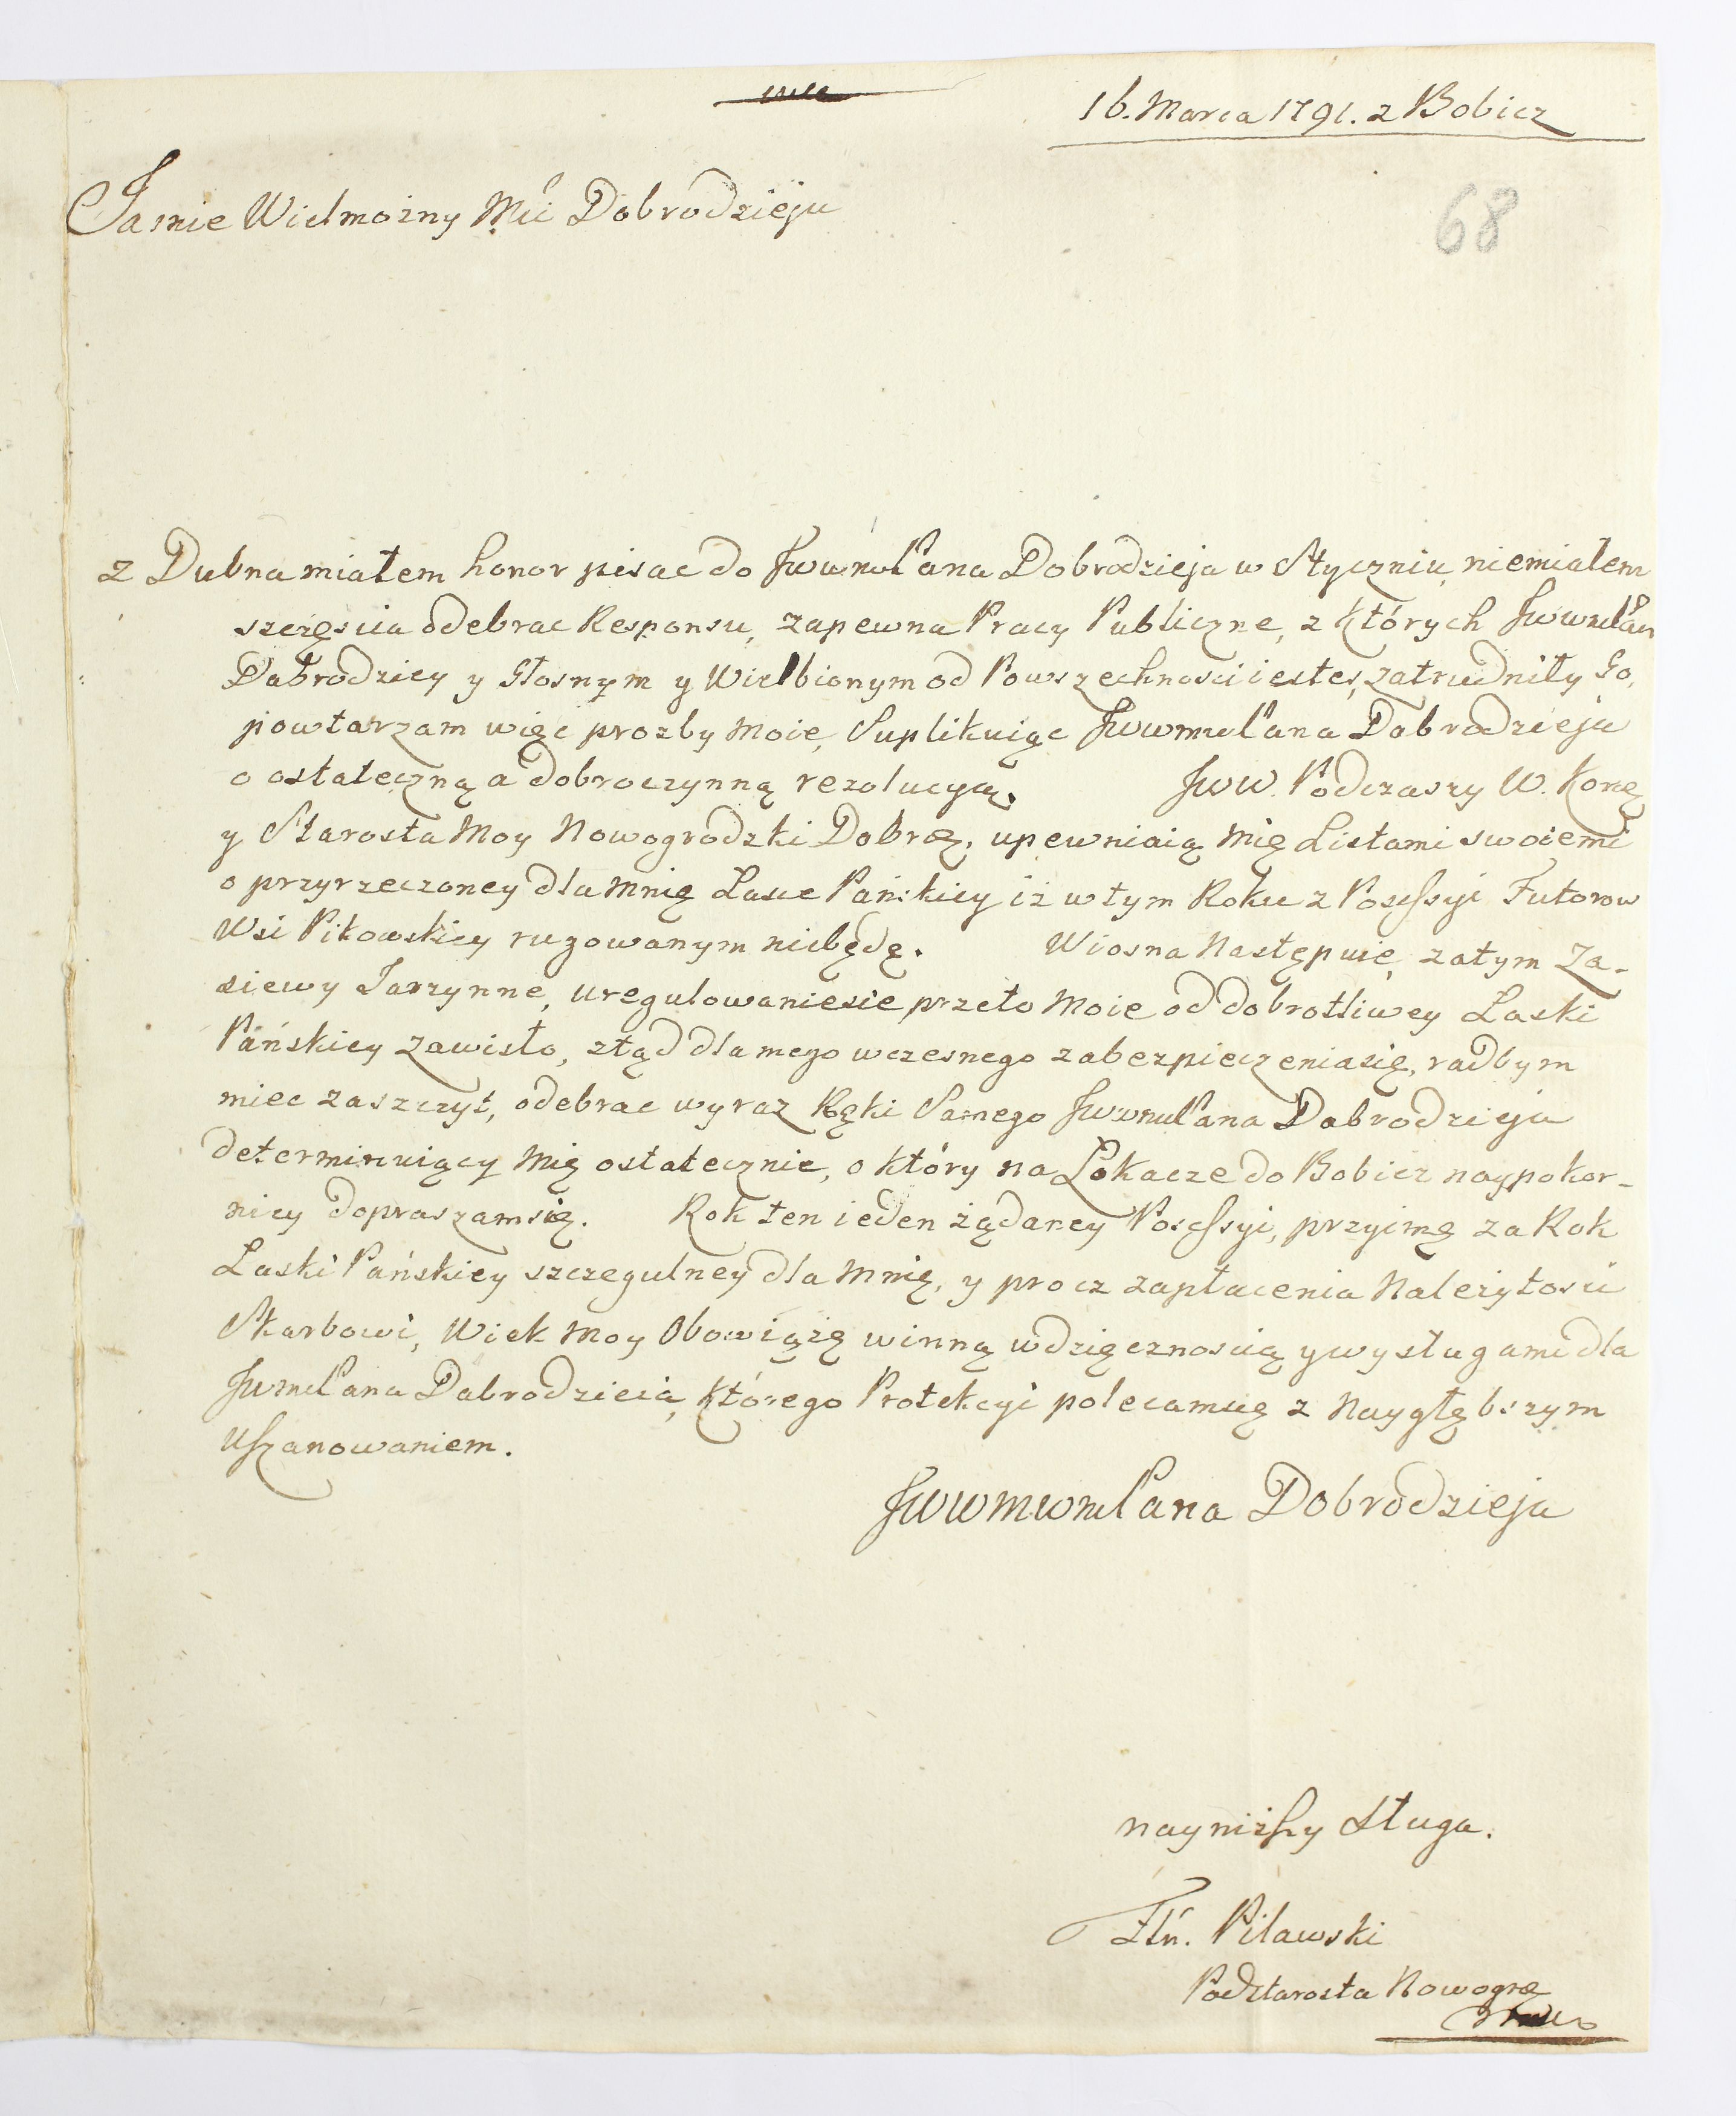 16. Marca 1791. z Bobicz
68
Jasnie Wielmożny Mci Dobrodzieju
z Dubna miałem honor pisac do JwwmPana Dobrodzieja w Styczniu, niemiałem
szczęscia odebrac Responsu, zapewna Pracy Publiczne, z których JwwmPan
Dobrodziey y Głosnym y Wielbionym od Powszechnosci iestes, zatrudniły Go,
powtarzam więc prozby Moie, Suplikuiąc JwwmPana Dobrodzieja
o ostateczną a dobroczynną rezolucyą. Jww Podczaszy W. Korę
y Starosta Moy Nowogrodzki Dobrę, upewniaią Mię Listami swoiemi
o przyrzeczoney dla Mnię Lasce Pańskiey iż w tym Roku z Possessyi Futorow
Wsi Piłowskiey rugowanym niebędę. Wiosna Następuie, zatym Za-
siewy Jarzynne, uregulowaniesie przeto Moie od dobrotliwey Laski
Pańskiey zawisło, ztąd dla mego wczesnego zabezpieczeniasię, radbym
miec zaszczyt, odebrac wyraz Ręki Samego JwwmPana Dobrodzieja
determinuiący Mię ostatecznie, o który na Łokacze do Bobicz naypokor-
niey dopraszamsię. Rok ten ieden żądaney Possessyi, przyimę za Rok
Laski Pańskiey szczegulney dla Mnię, y procz zapłacenia Należytosci
Skarbowi, Wiek Moy Obowiążę winną wdzięcznoscią y wysługami dla
JwmPana Dobrodzieia, którego Protekcyi polecamsię z Naygłębszym
Uszanowaniem.
JwwmwmPana Dobrodzieja
nayniższy Sługa.
Piławski
Podstarosta Nowogrę